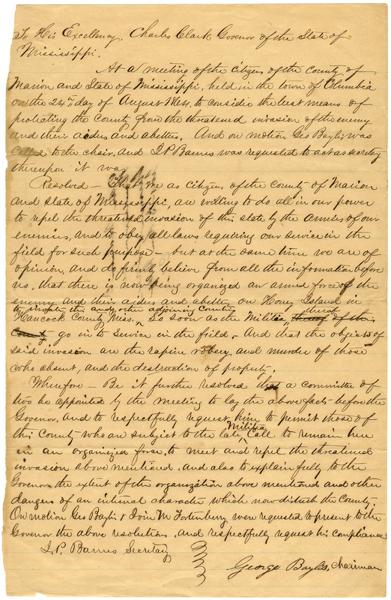 To His Excellency, Charles Clark Govenor of the State of
Mississippi.
At a meeting of the citizens of the County of
Marion and State of Mississippi, held in the town of Columbia
on the 24th day of August 1864. to consider the best means of
protecting the County from the threatened invasion of the enemy
and their aiders and abettors, And on motion Geo Bayliss was
called to the chair, and J.P. Barnes was requested to act as secretary
thereupon it was
Resolved – That we as citizens of the county of Marion
and State of Mississippi, are willing to do all in our power
to repel the threatened invasion of this state by the armies of our
enemies, and to obey all laws requiring our service in the
field for such purpose – but at the same time we are of
opinion, and do firmly believe from all the information before
us, that there is now being organized an armed force of the
enemy and their aiders and abettors on Honey Island in
to invade this and other adjoining Counties
Hancock County Miss, so soon as the Militia
County go into service in the field, And that the objects of
said invasion are the rapine robery and murder of those
who absent, and the destruction of property.
Wherefore – Be it further resolved that a committee of
two be appointed by the meeting to lay the above facts before the
Governor, and to respectfully request him to permit those of
this County who are subject to the late Militia Call to remain here
in an organized force, to meet and repel the threatened
invasion above mentioned. and also to explain fully to the
Governor the extent of the organization above mentioned and other
dangers of an internal character which now disturb the County.
On motion Geo Bayliss & M Fortenbury were requested to present to the
Governor the above resolutions, and respectfully request his compliance
J.P. Barnes Secretary
George Bayliss, Chairman